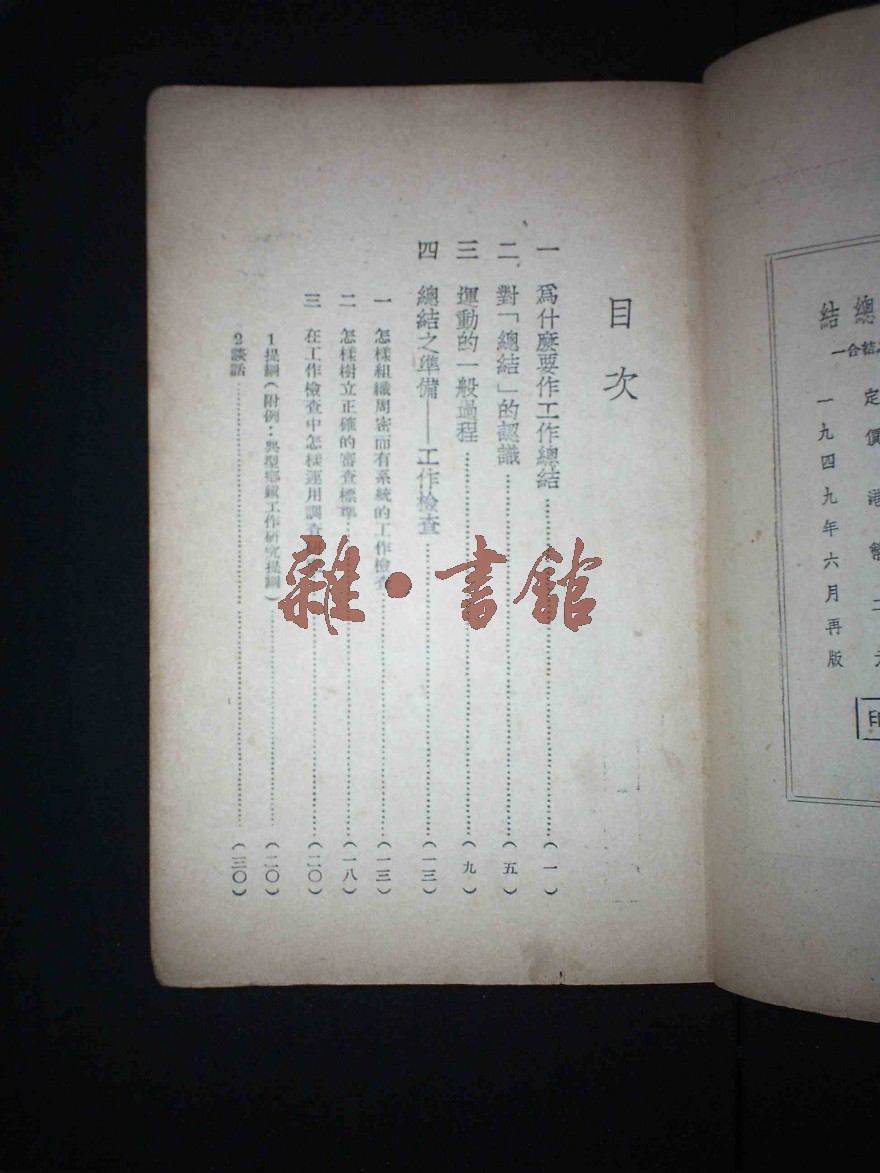 目次
一 爲什麼要作工作總結……(一)
二 對「總結」的認識……(五)
三 運動的一般過程……(九)
四 總結之準備——工作檢查……(一三)
一 怎樣組織周密而有系統的工作檢查……(一三)
二 怎樣樹立正確的審查標準……(一八)
三 在工作檢查中怎樣運用調查……(二〇)
1 提綱(附例:典型鄉鎮工作研究提綱)……(二〇)
2 談話……(三〇)
雜·書館
定價港幣二元
總結
一九四九年六月再版
印